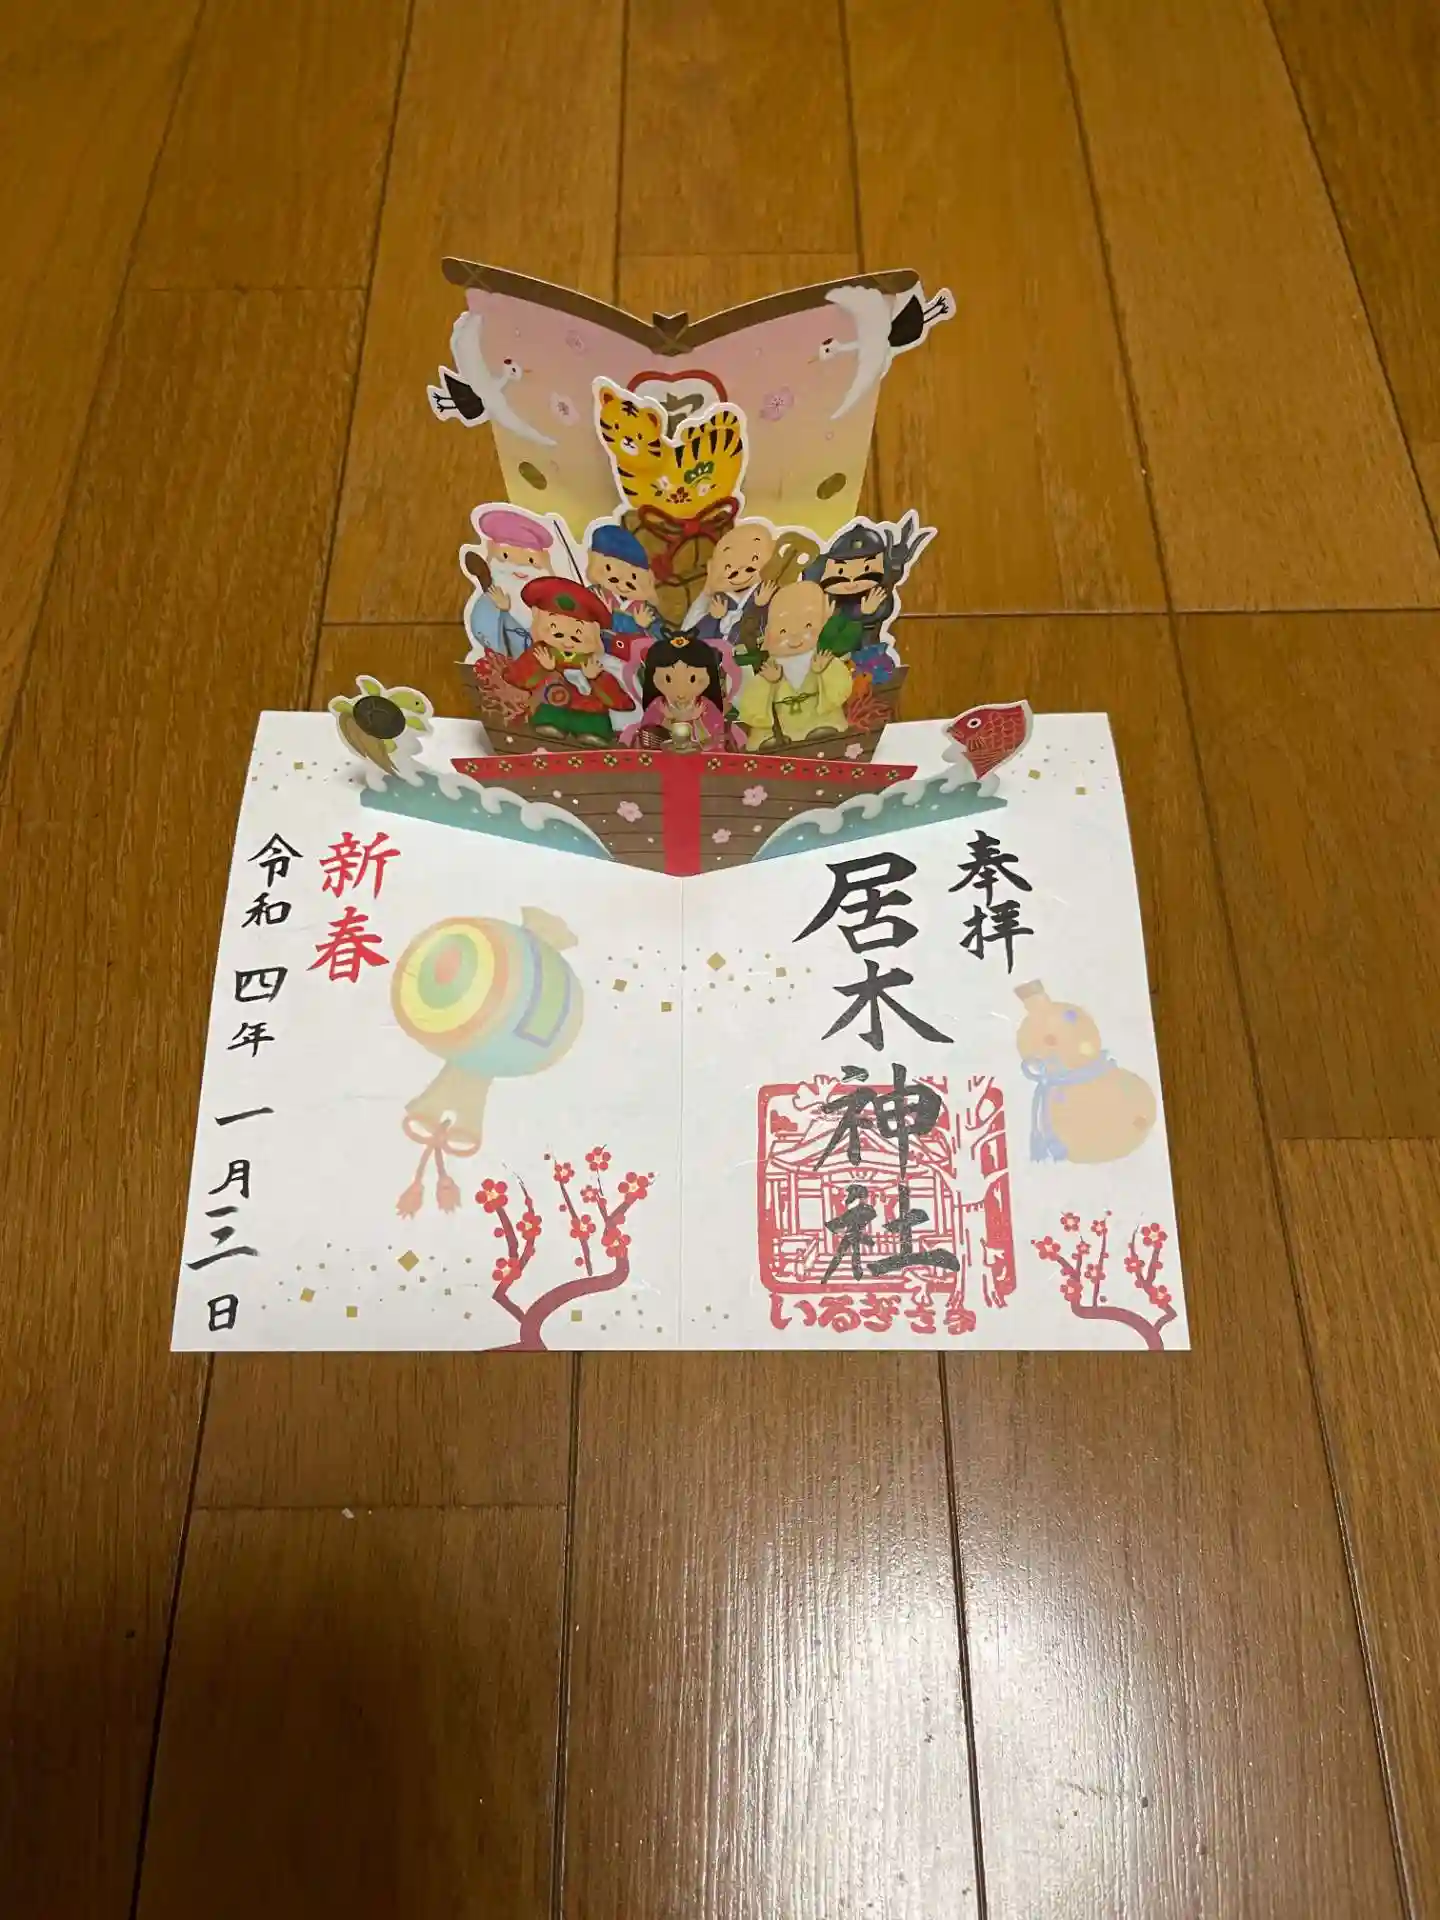 奉拝
居木神社
いるぎさま
新春
令和四年一月三日